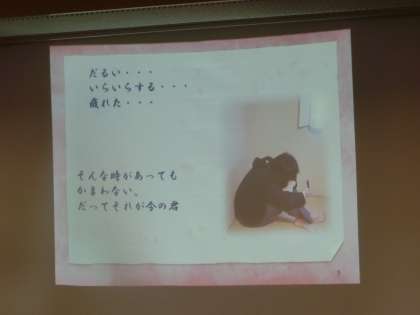 だるい・・・
いらいらする・・・
疲れた・・・
そんな時があっても
かまわない。
だってそれが今の君